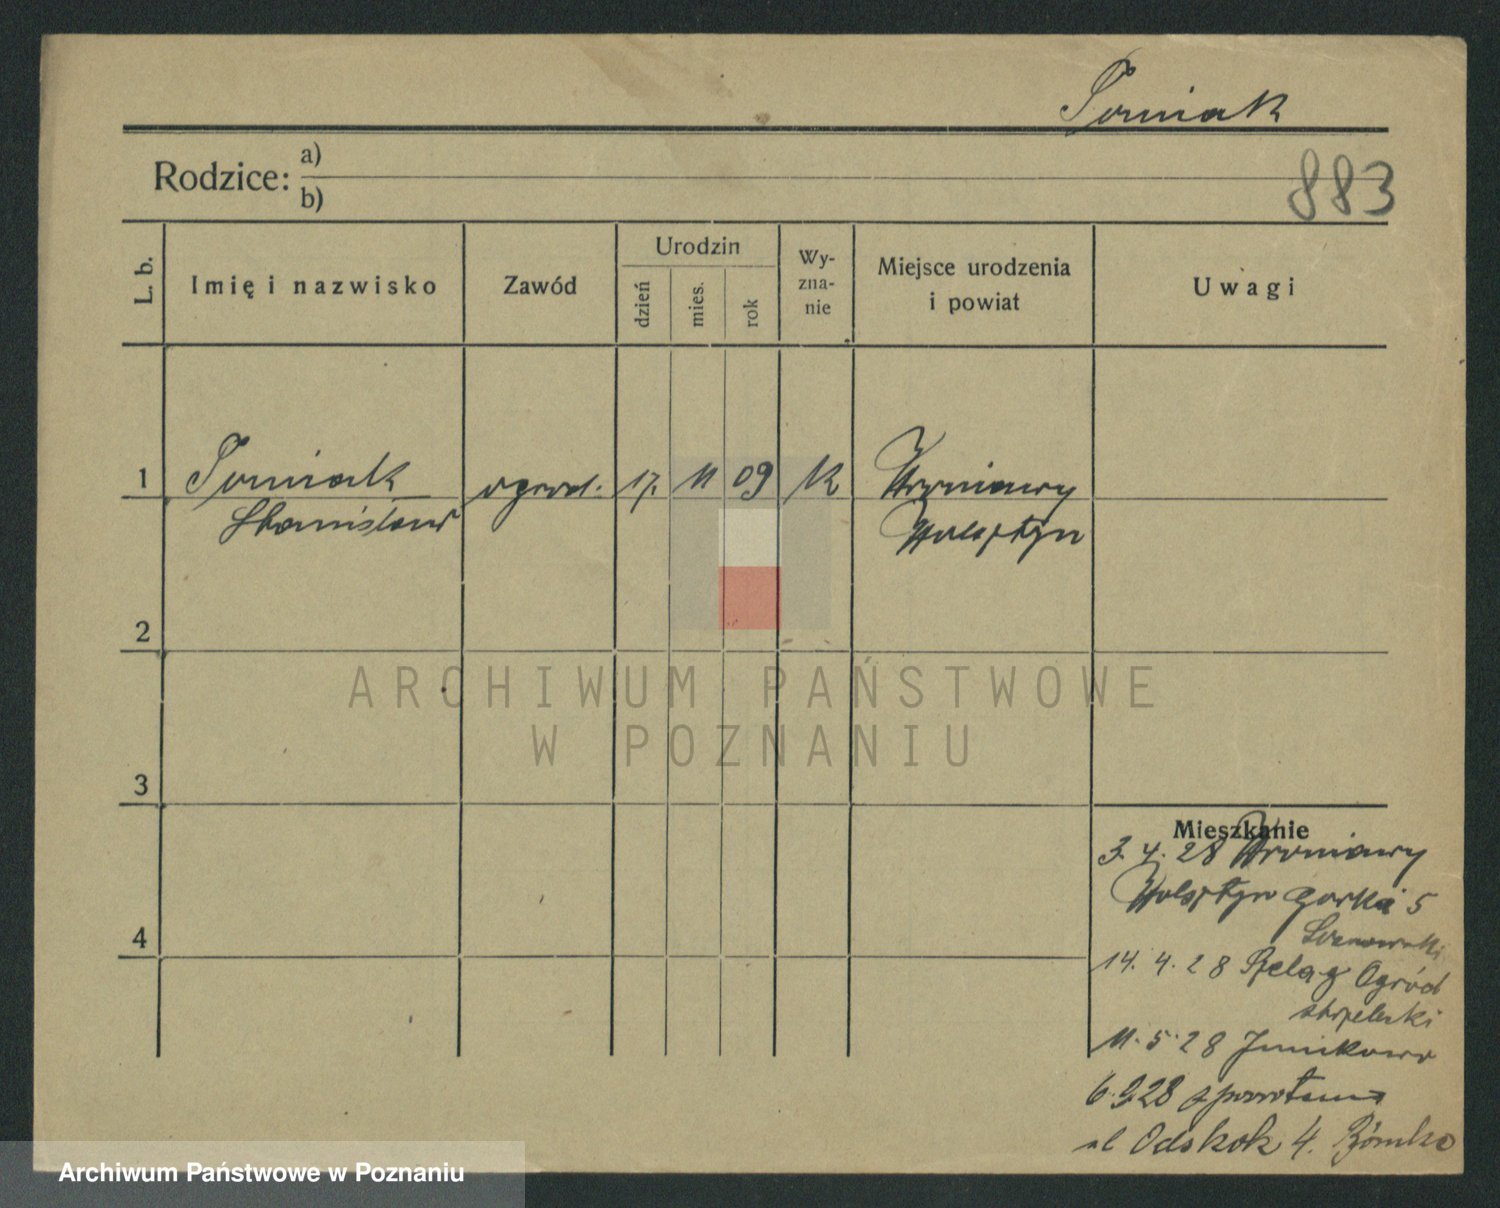 Tomiak
883
Rodzice:
a)
b)
L. b.
Imię i nazwisko
Zawód
Urodzin
dzień
mies.
rok
Wy-
zna-
nie
Miejsce urodzenia
i powiat
Uwagi
1
Tomiak
Stanisław
ogrod.
17.
11
09
K
Wroniawy
Wolsztyn
2
ARCHIWUM PAŃSTWOWE
W POZNANIU
3
4
Mieszkanie
3. 4. 28 Wroniawy
Wolsztyn Górka 5
14. 4. 28 Szeląg Ogród
strzelecki
11. 5. 28 Junikowo
6. 9. 28 z powrotem
ul Odskok 4.
Archiwum Państwowe w Poznaniu